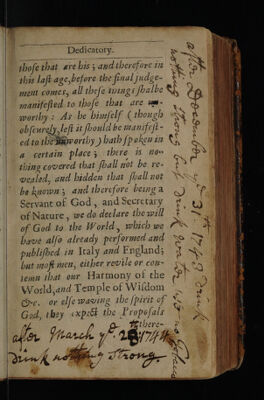 Dedicatory.
those that are his; and therefore in
this last age, before the final judge-
ment comes, all these things shall be
manifested to those that are
worthy: As he himself (though
obscurely, lest it should be manifest-
ed to the unworthy) hath spoken in
a certain place; there is no-
thing covered that shall not be re-
vealed, and hidden that shall not
be known; and therefore being a
Servant of God, and Secretary
of Nature, we do declare the will
of God to the World, which we
have also already performed and
published in Italy and England;
but most men, either revile or con-
temn that our Harmony of the
World, and Temple of Wisdom
&c. or else waving the spirit of
God, they expect the Proposals
there-
after March ye. 25th 1744
drink nothing strong
after December ye 31th 1743 drink
nothing strong but drink